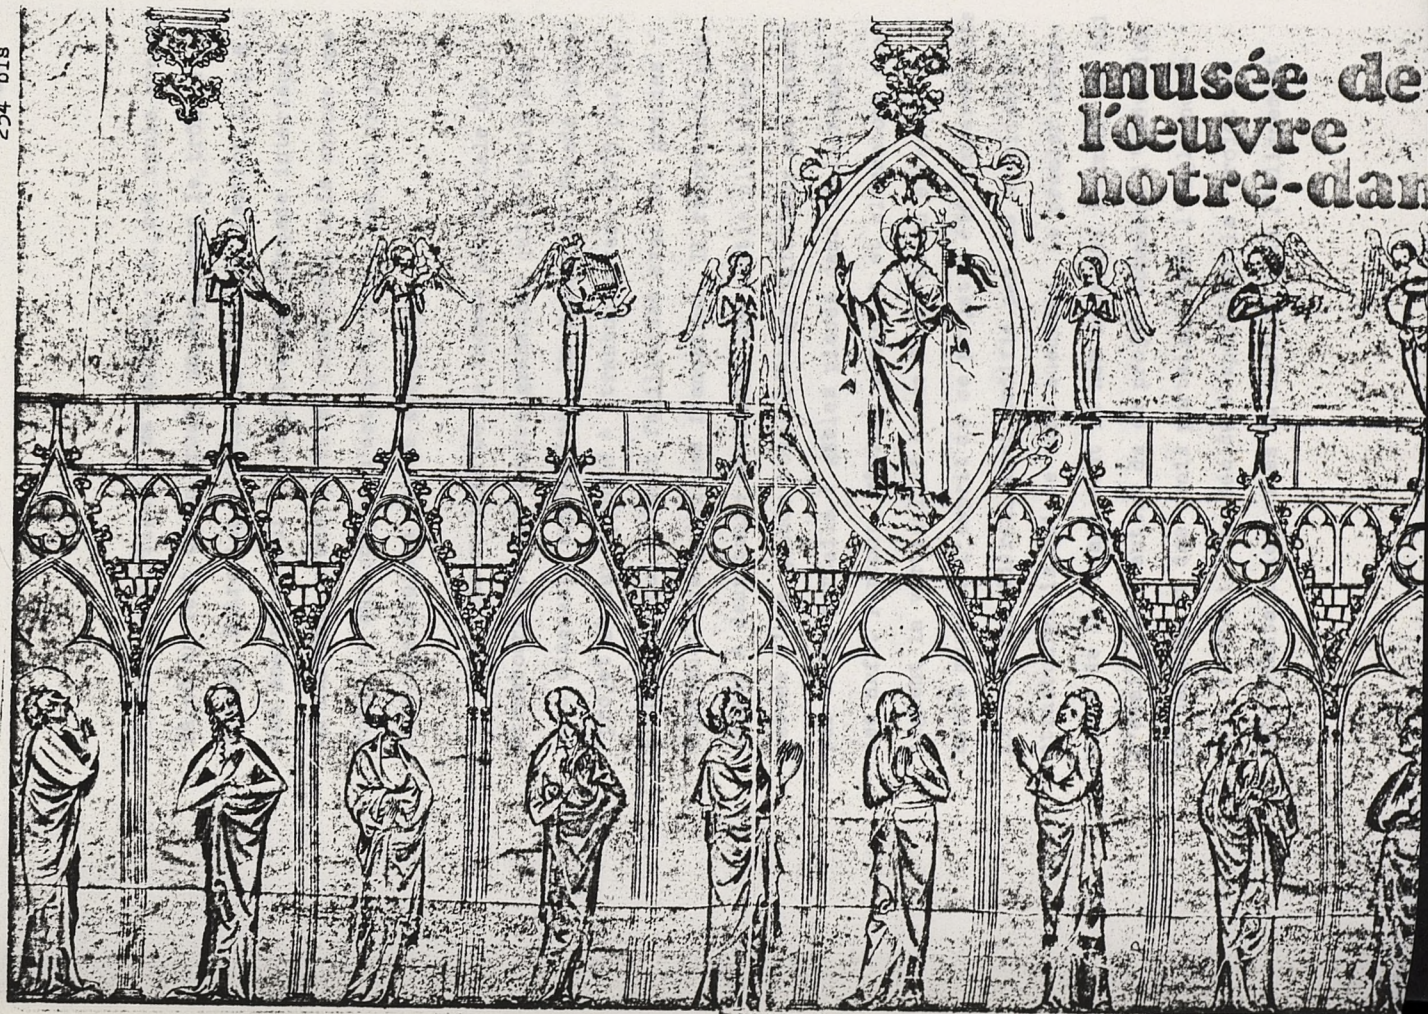 254 bis
musée de
l'œuvre
notre-dam